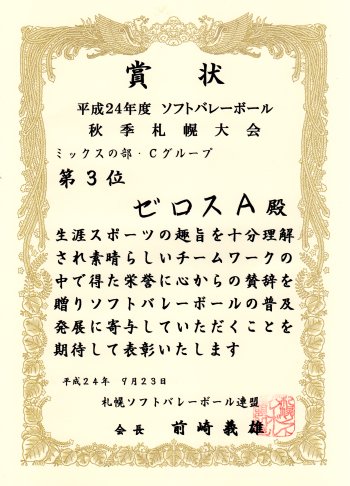 賞状
平成24年度 ソフトバレーボール
秋季札幌大会
ミックスの部・Cグループ
第3位
ゼロスA殿
生涯スポーツの趣旨を十分理解
され素晴らしいチームワークの
中で得た栄誉に心からの賛辞を
贈りソフトバレーボールの普及
発展に寄与していただくことを
期待して表彰いたします
平成24年 9月23日
札幌ソフトバレーボール連盟
会長 前崎義雄